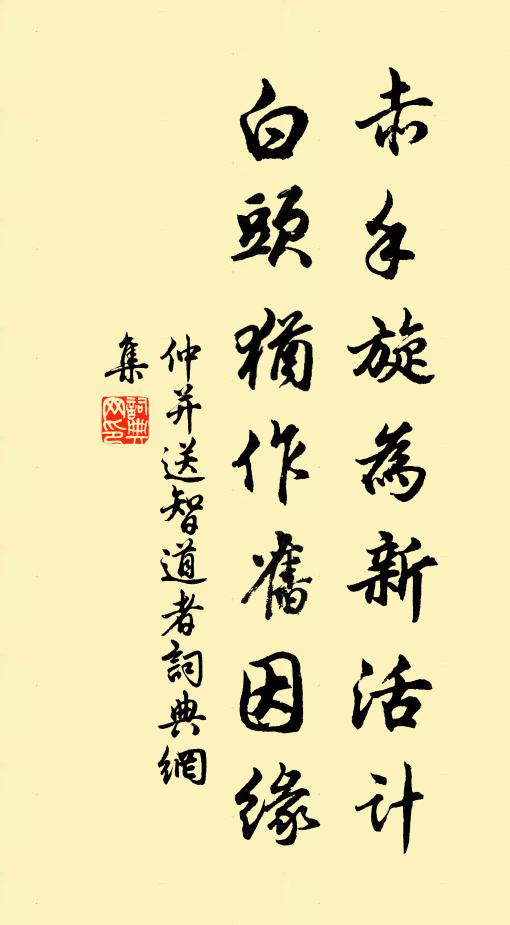 赤手旋為新活計
白頭猶作舊因緣
仲并送智道者詞典網
集
詞典
网印